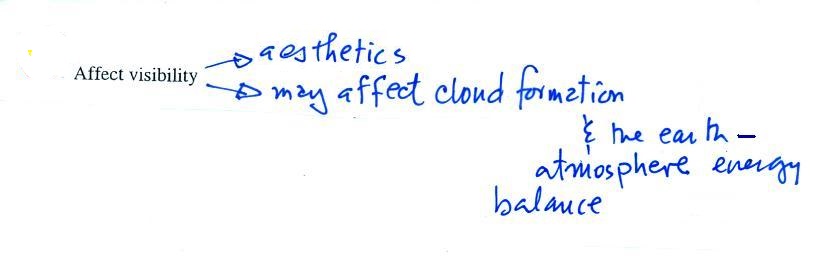 aesthetics
Affect visibility
may affect cloud formation
& the earth -
atmosphere energy
balance